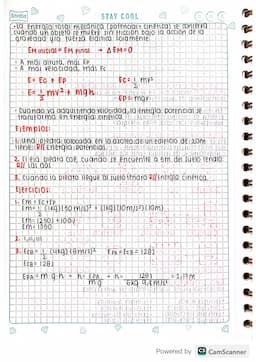 STAY COOL
Scribe
• La energía total mecánica (potencial + cinética) se conserva
cuando un objeto se mueve sin fricción bajo la acción de la
gravedad y/o fuerza elástica solamente.
EM inicial = EM final → ΔEM=0
• A más altura, más Ep
• A más velocidad, más Ec
E= Ec + Ep Ec= 1/2 mv²
E= 1/2 mv² + mgh Ep= mgh
• Cuando va adquiriendo velocidad la energía potencial se
transforma en energía cinética.
Ejemplos:
1. Una pelota colocada en la azotea de un edificio de 20m
tiene: R// Energía potencial.
2. Si la pelota cae, cuando se encuentre a 5m del suelo tendrá
R// Las dos
3. Cuando la pelota llegue al suelo tendrá R// Energía cinética.
Ejercicios:
1- Em = Ec + Ep
Em = 1/2 (1kg)(50m/s)² + (1kg)(10m/s²)(10m)
Em = 1250J + 100J
Em = 1350
2-
3. EcB = 1/2 (4kg)(8m/s)² EpA = EcB = 128J
EcB = 128J
EpA = m g h → h = EpA/mg → h = 128J